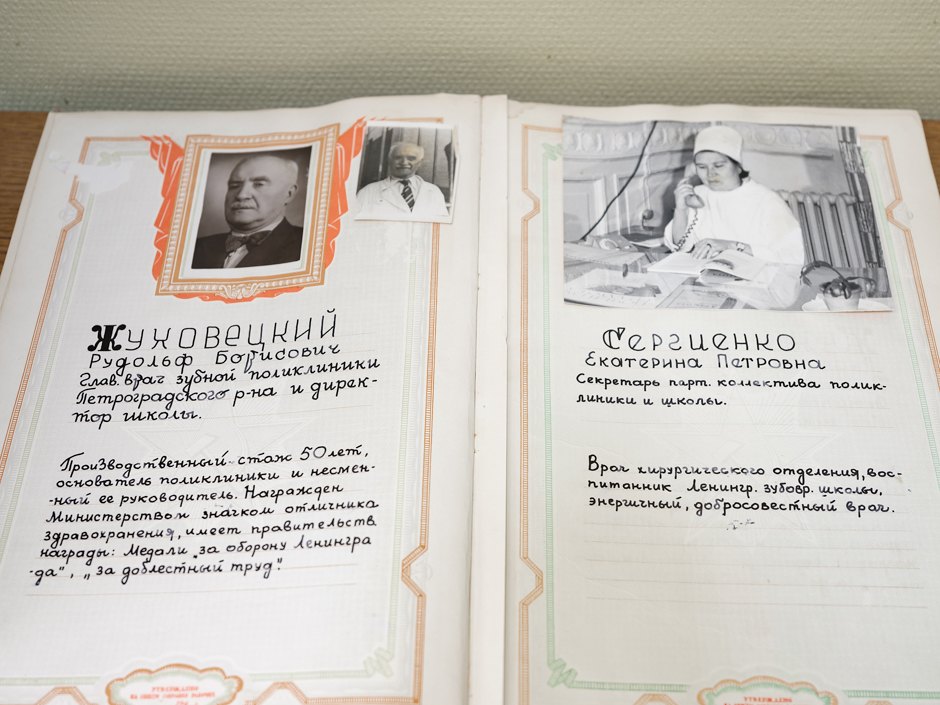 Жуховецкий
Рудольф Борисович
Глав. врач зубной поликлиники
Петроградского р-на и дирек-
тор школы.
Производственный стаж 50 лет,
основатель поликлиники и несмен-
-ный ее руководитель. Награжден
Министерством значком отличника
здравохранения, имеет правительств
награды: Медали „за оборону Ленингра
-да", „за доблестный труд".
Сергиенко
Екатерина Петровна
Секретарь парт. коллектива полик-
линики и школы.
Врач хирургического отделения, вос-
питанник Ленингр. зубовр. школы,
энергичный, добросовестный врач.